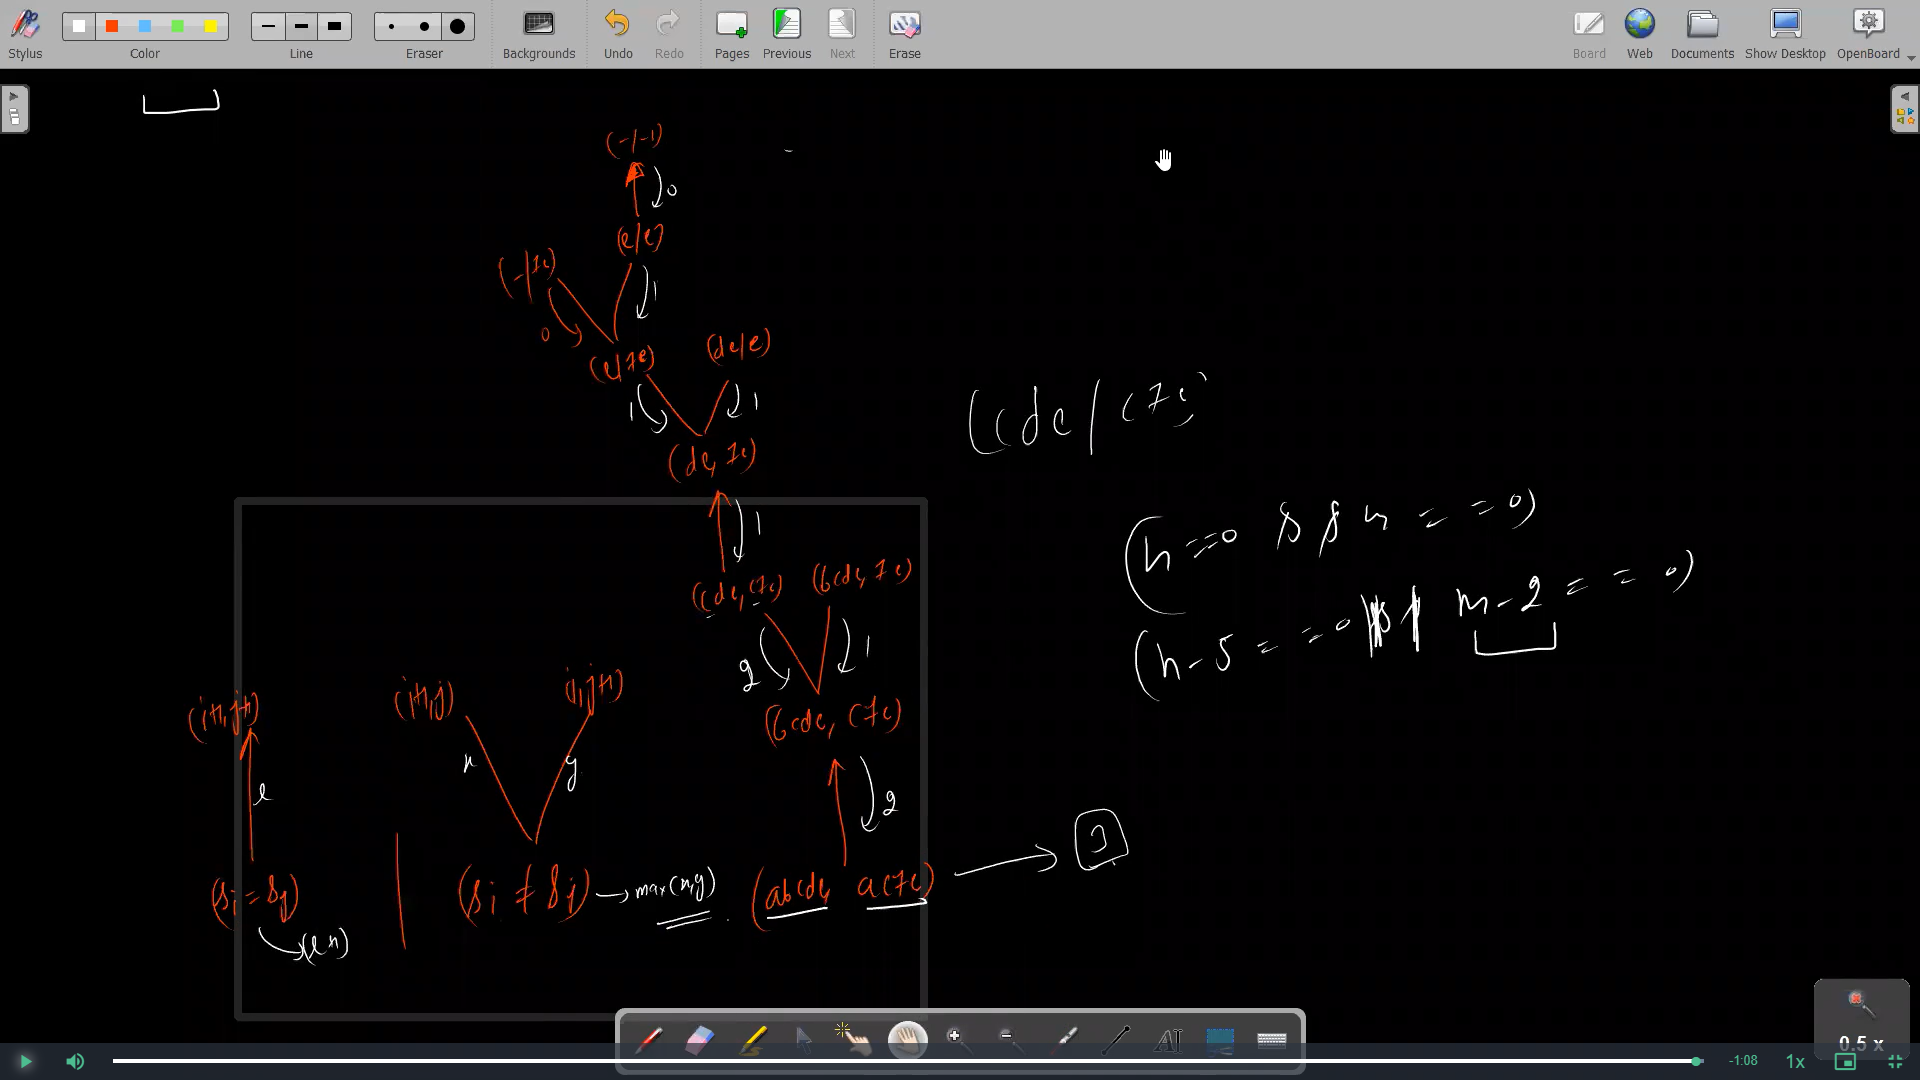 Stylus
Color
Line
Eraser
Backgrounds
Undo
Redo
Pages
Previous
Next
Erase
Board
Web
Documents
Show Desktop
OpenBoard
(-/-1)
0
(e/e)
1
0
(de/e)
1
1
1
(cde/c7e)
(n==0 && m==0)
m-2==0)
1
2
(bcde, c7e)
2
(i+1,j+1)
(i+1,j)
(i,j+1)
x
y
(Si = Sj)
(Si ≠ Sj)
max(x,y)
(abcde, ac7e)
3
0.5 x
-1:08
1x